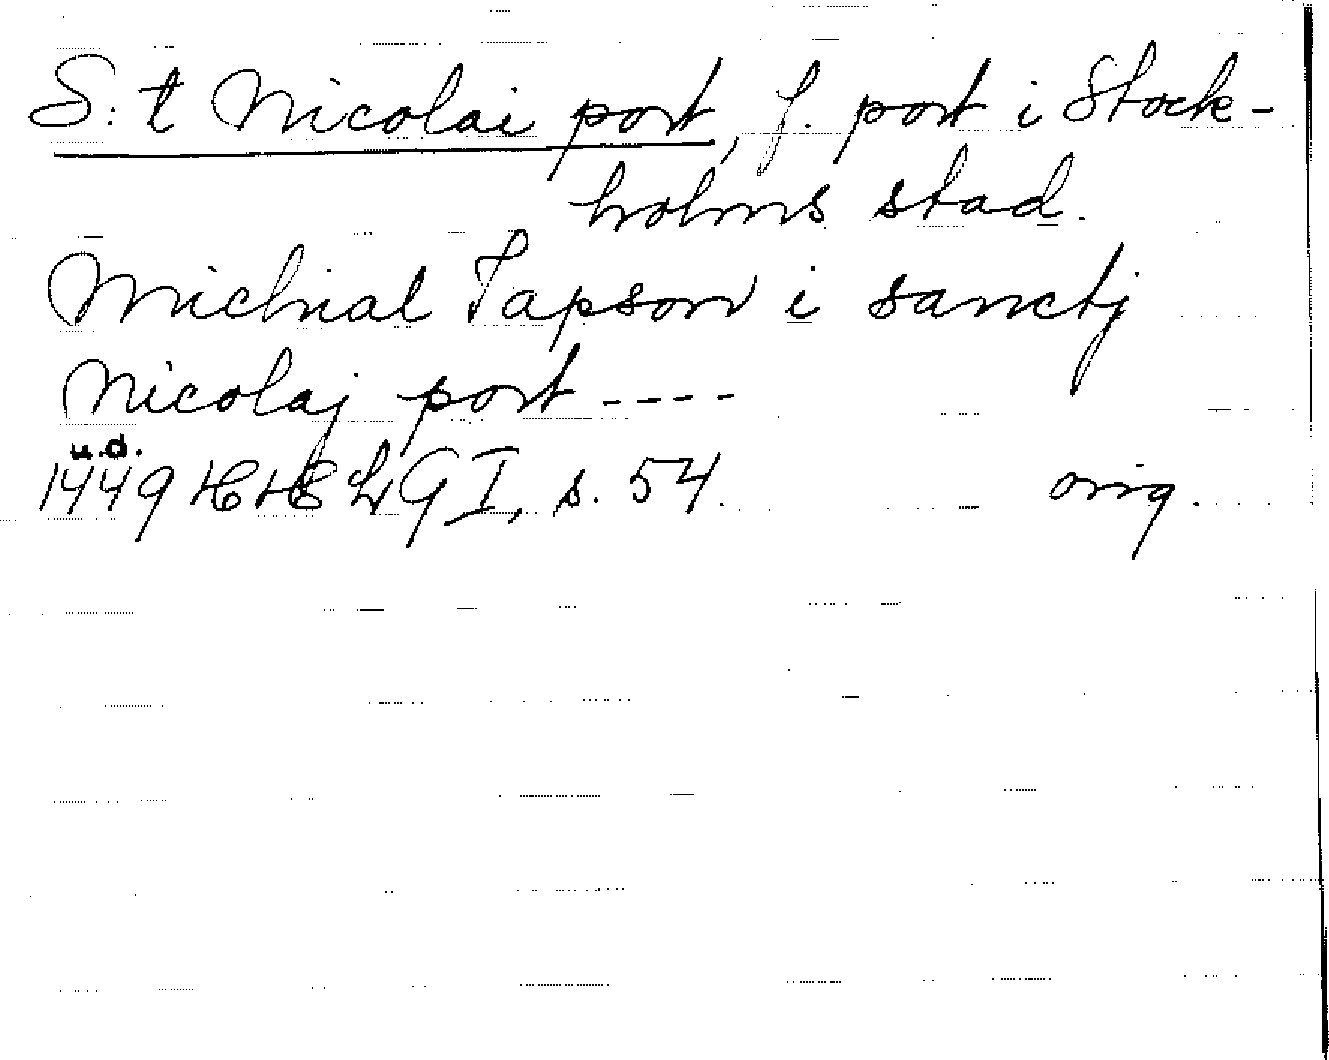 S:t Nicolai port, f. port i Stock-
holms stad.
Michial Tapson i sanctj
Nicolaj port ----
u.d.
1449 HHLG I, s. 54. orig.